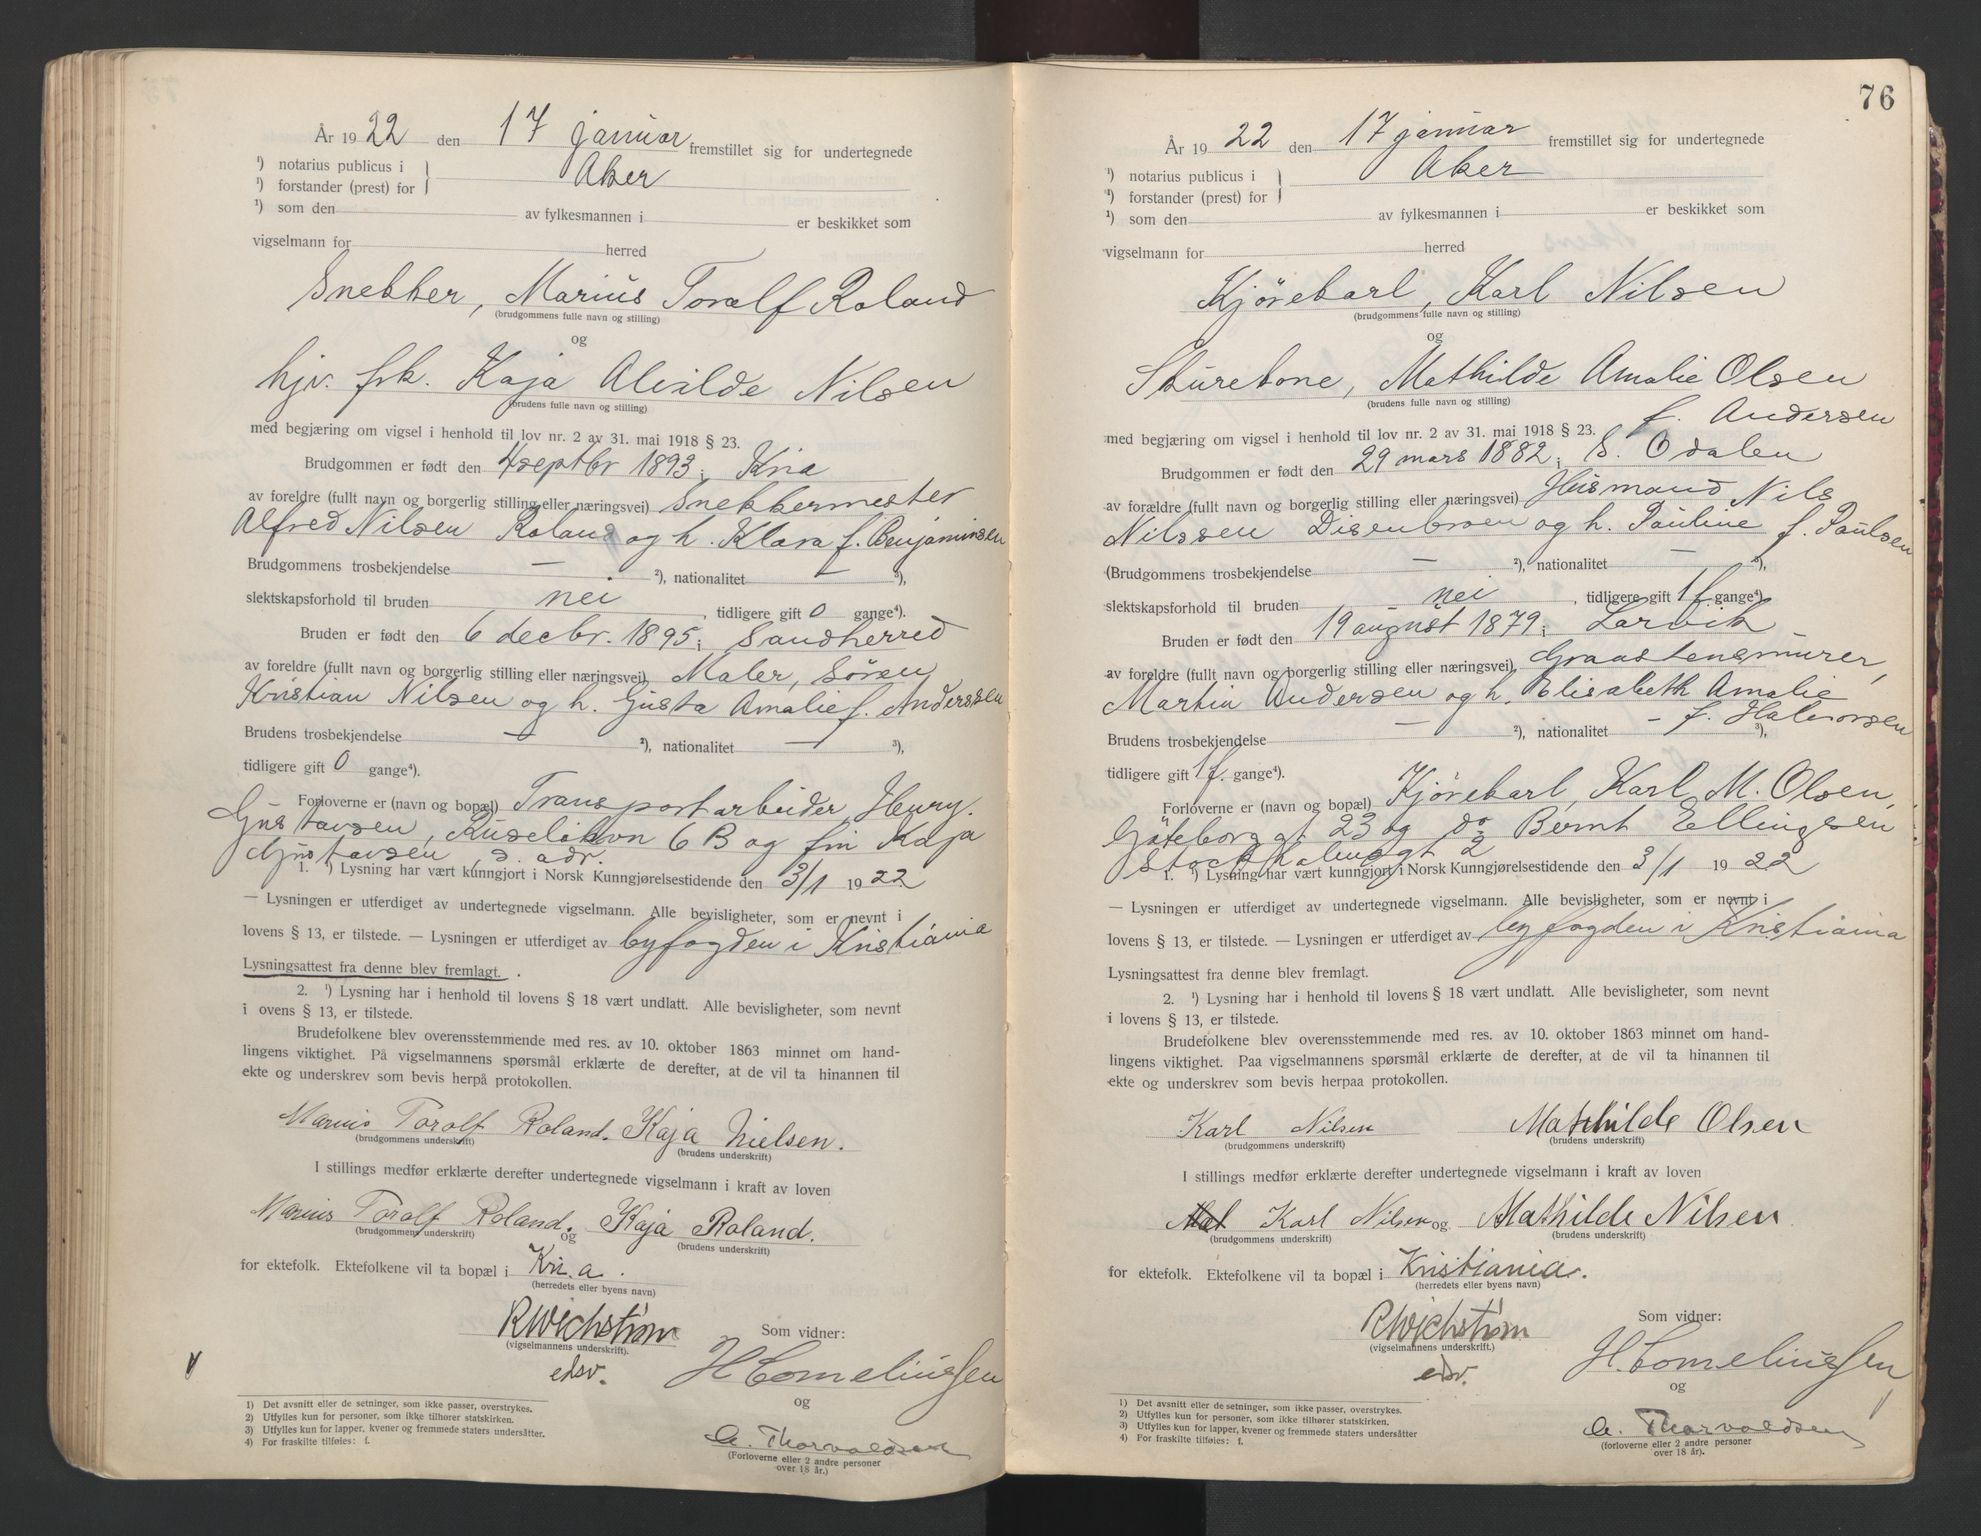 År 1922 den 17 januar fremstillet sig for undertegnede
¹) notarius publicus i } Aker
¹) forstander (prest) for
¹) som den av fylkesmannen i er beskikket som
vigselmann for herred
Snekker, Marius Toralf Roland
(brudgommens fulle navn og stilling)
og
hjv. frk. Kaja Alvilde Nilsen
(brudens fulle navn og stilling)
med begjæring om vigsel i henhold til lov nr. 2 av 31. mai 1918 § 23.
Brudgommen er født den 4 septbr 1893; Kria
av foreldre (fullt navn og borgerlig stilling eller næringsvei) Snekkermester
Alfred Nilsen Roland og h. Klara f. Benjaminsen
Brudgommens trosbekjendelse — ²), nationalitet — ³),
slektskapsforhold til bruden nei, tidligere gift 0 gange⁴).
Bruden er født den 6 decbr. 1895; Sandherred
av foreldre (fullt navn og borgerlig stilling eller næringsvei) Maler, Søren
Kristian Nilsen og h. Gusta Amalie f. Anderssen
Brudens trosbekjendelse — ²), nationalitet — ³),
tidligere gift 0 gange⁴).
Forloverne er (navn og bopæl) Transportarbeider, Henry
Gustavsen, Ruseløkvn 6 B og fru Kaja
Gustavsen, s. adr.
1. ¹) Lysning har vært kunngjort i Norsk Kunngjørelsestidende den 3/1 1922
— Lysningen er utferdiget av undertegnede vigselmann. Alle bevisligheter, som er nevnt i
lovens § 13, er tilstede. — Lysningen er utferdiget av byfogden i Kristiania
Lysningsattest fra denne blev fremlagt.
2. ¹) Lysning har i henhold til lovens § 18 vært undlatt. Alle bevisligheter, som nevnt
i ovens § 13, er tilstede.
Brudefolkene blev overensstemmende med res. av 10. oktober 1863 minnet om hand-
lingens viktighet. På vigselmannens spørsmål erklærte de derefter, at de vil ta hinannen til
ekte og underskrev som bevis herpå protokollen.
Marius Toralf Roland. Kaja Nielsen.
(brudgommens underskrift) (brudens underskrift)
I stillings medfør erklærte derefter undertegnede vigselmann i kraft av loven
Marius Toralf Roland. og Kaja Roland.
(brudgommens underskrift) (brudens underskrift)
for ektefolk. Ektefolkene vil ta bopæl i Kri.a.
(herredets eller byens navn)
RWichstrøm Som vidner:
(vigselmannens underskrift).
edsv. H Corneliussen
og
1) Det avsnitt eller de setninger, som ikke passer, overstrykes.
2) Utfylles kun for personer, som ikke tilhører statskirken.
3) Utfylles kun for lapper, kvener og fremmede staters undersåtter.
4) For fraskilte tilføies: f.
Thorvaldsen
(Forloverne eller 2 andre personer
over 18 år.)
76
År 1922 den 17 januar fremstillet sig for undertegnede
¹) notarius publicus i } Aker
¹) forstander (prest) for
¹) som den av fylkesmannen i er beskikket som
vigselmann for herred
Kjørekarl, Karl Nilsen
(brudgommens fulle navn og stilling)
og
Skurekone, Mathilde Amalie Olsen
(brudens fulle navn og stilling)
f. Andersen
med begjæring om vigsel i henhold til lov nr. 2 av 31. mai 1918 § 23.
Brudgommen er født den 29 mars 1882; S. Odalen
av forældre (fullt navn og borgerlig stilling eller næringsvei) Husmand Nils
Nilssen Disenbroen og h. Pauline f. Paulsen
(Brudgommens trosbekjendelse — ²), nationalitet — ³),
slektskapsforhold til bruden nei, tidligere gift 1 f. gange⁴).
Bruden er født den 19 august 1879; Larvik
av foreldre (fullt navn og borgerlig stilling eller næringsvei) Graastensmurer,
Martin Andersen og h. Elisabeth Amalie
f. Halvorsen
Brudens trosbekjendelse — ²), nationalitet — ³),
tidligere gift 1 f. gange⁴).
Forloverne er (navn og bopæl) Kjørekarl, Karl M. Olsen,
Göteborg gt 23 og do Bernt Ellingsen
Stockholmsgt 2
1. ¹) Lysning har vært kunngjort i Norsk Kunngjørelsestidende den 3/1 1922
— Lysningen er utferdiget av undertegnede vigselmann. Alle bevisligheter, som er nevnt i
lovens § 13, er tilstede. — Lysningen er utferdiget av byfogden i Kristiania
Lysningsattest fra denne blev fremlagt.
2. ¹) Lysning har i henhold til lovens § 18 vært undlatt. Alle bevisligheter, som nevnt
i lovens § 13, er tilstede.
Brudefolkene blev overensstemmende med res. av 10. oktober 1863 minnet om hand-
lingens viktighet. Paa vigselmannens spørsmål erklærte de derefter, at de vil ta hinannen til
ekte og underskrev som bevis herpaa protokollen.
Karl Nilsen Mathilde Olsen
(brudgommens underskrift) (brudens underskrift)
I stillings medfør erklærte derefter undertegnede vigselmann i kraft av loven
Karl Nilsen og Mathilde Nilsen
(brudgommens underskrift) (brudens underskrift)
for ektefolk. Ektefolkene vil ta bopæl i Kristiania.
(herredets eller byens navn)
RWichstrøm Som vidner:
(vigselmannens underskrift.)
edsv. H. Corneliussen
og
1) Det avsnitt eller de setninger, som ikke passer, overstrykes.
2) Utfylles kun for personer, som ikke tilhører statskirken.
3) Utfylles kun for lapper, kvener og fremmede staters undersåtter
4) For fraskilte tilføies: f.
Thorvaldsen
(forloverne eller 2 andre personer
over 18 år).